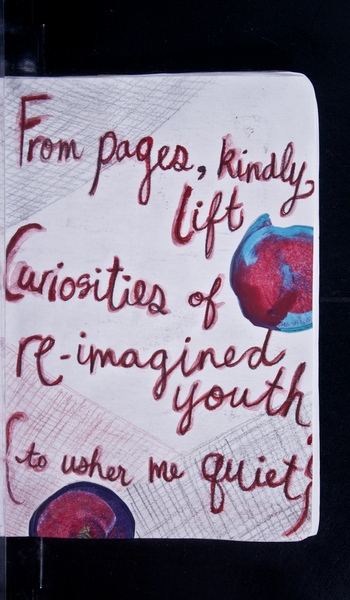 From pages, kindly,
lift
Curiosities of
re-imagined
youth
(to usher me quiet)